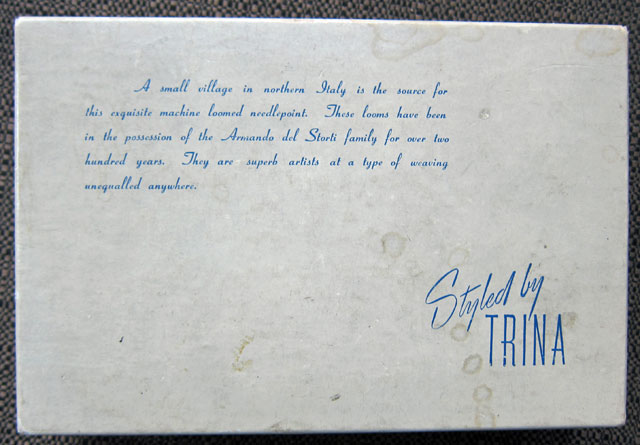 A small village in northern Italy is the source for
this exquisite machine loomed needlepoint. These looms have been
in the possession of the Armando del Storti family for over two
hundred years. They are superb artists at a type of weaving
unequalled anywhere.
Styled by
TRINA